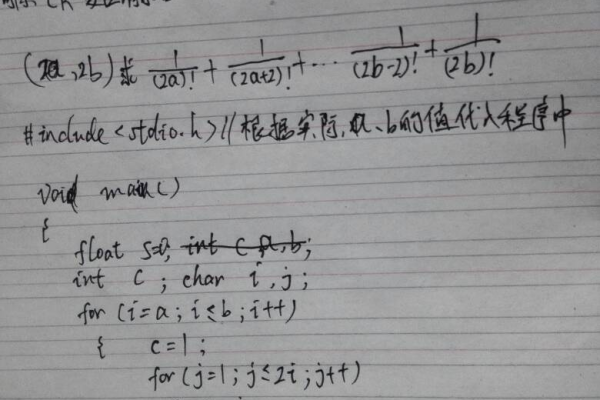 (2a,2b)求 1/(2a)! + 1/(2a+2)! + ··· 1/(2b-2)! + 1/(2b)!
#include<stdio.h>//根据实际,a、b的值代入程序中
void main()
{
float s=0, int c a,b;
int c ; char i,j;
for (i=a ; i≤b ; i++)
{ c=1 ;
for(j=1 ; j≤2i ; j++)